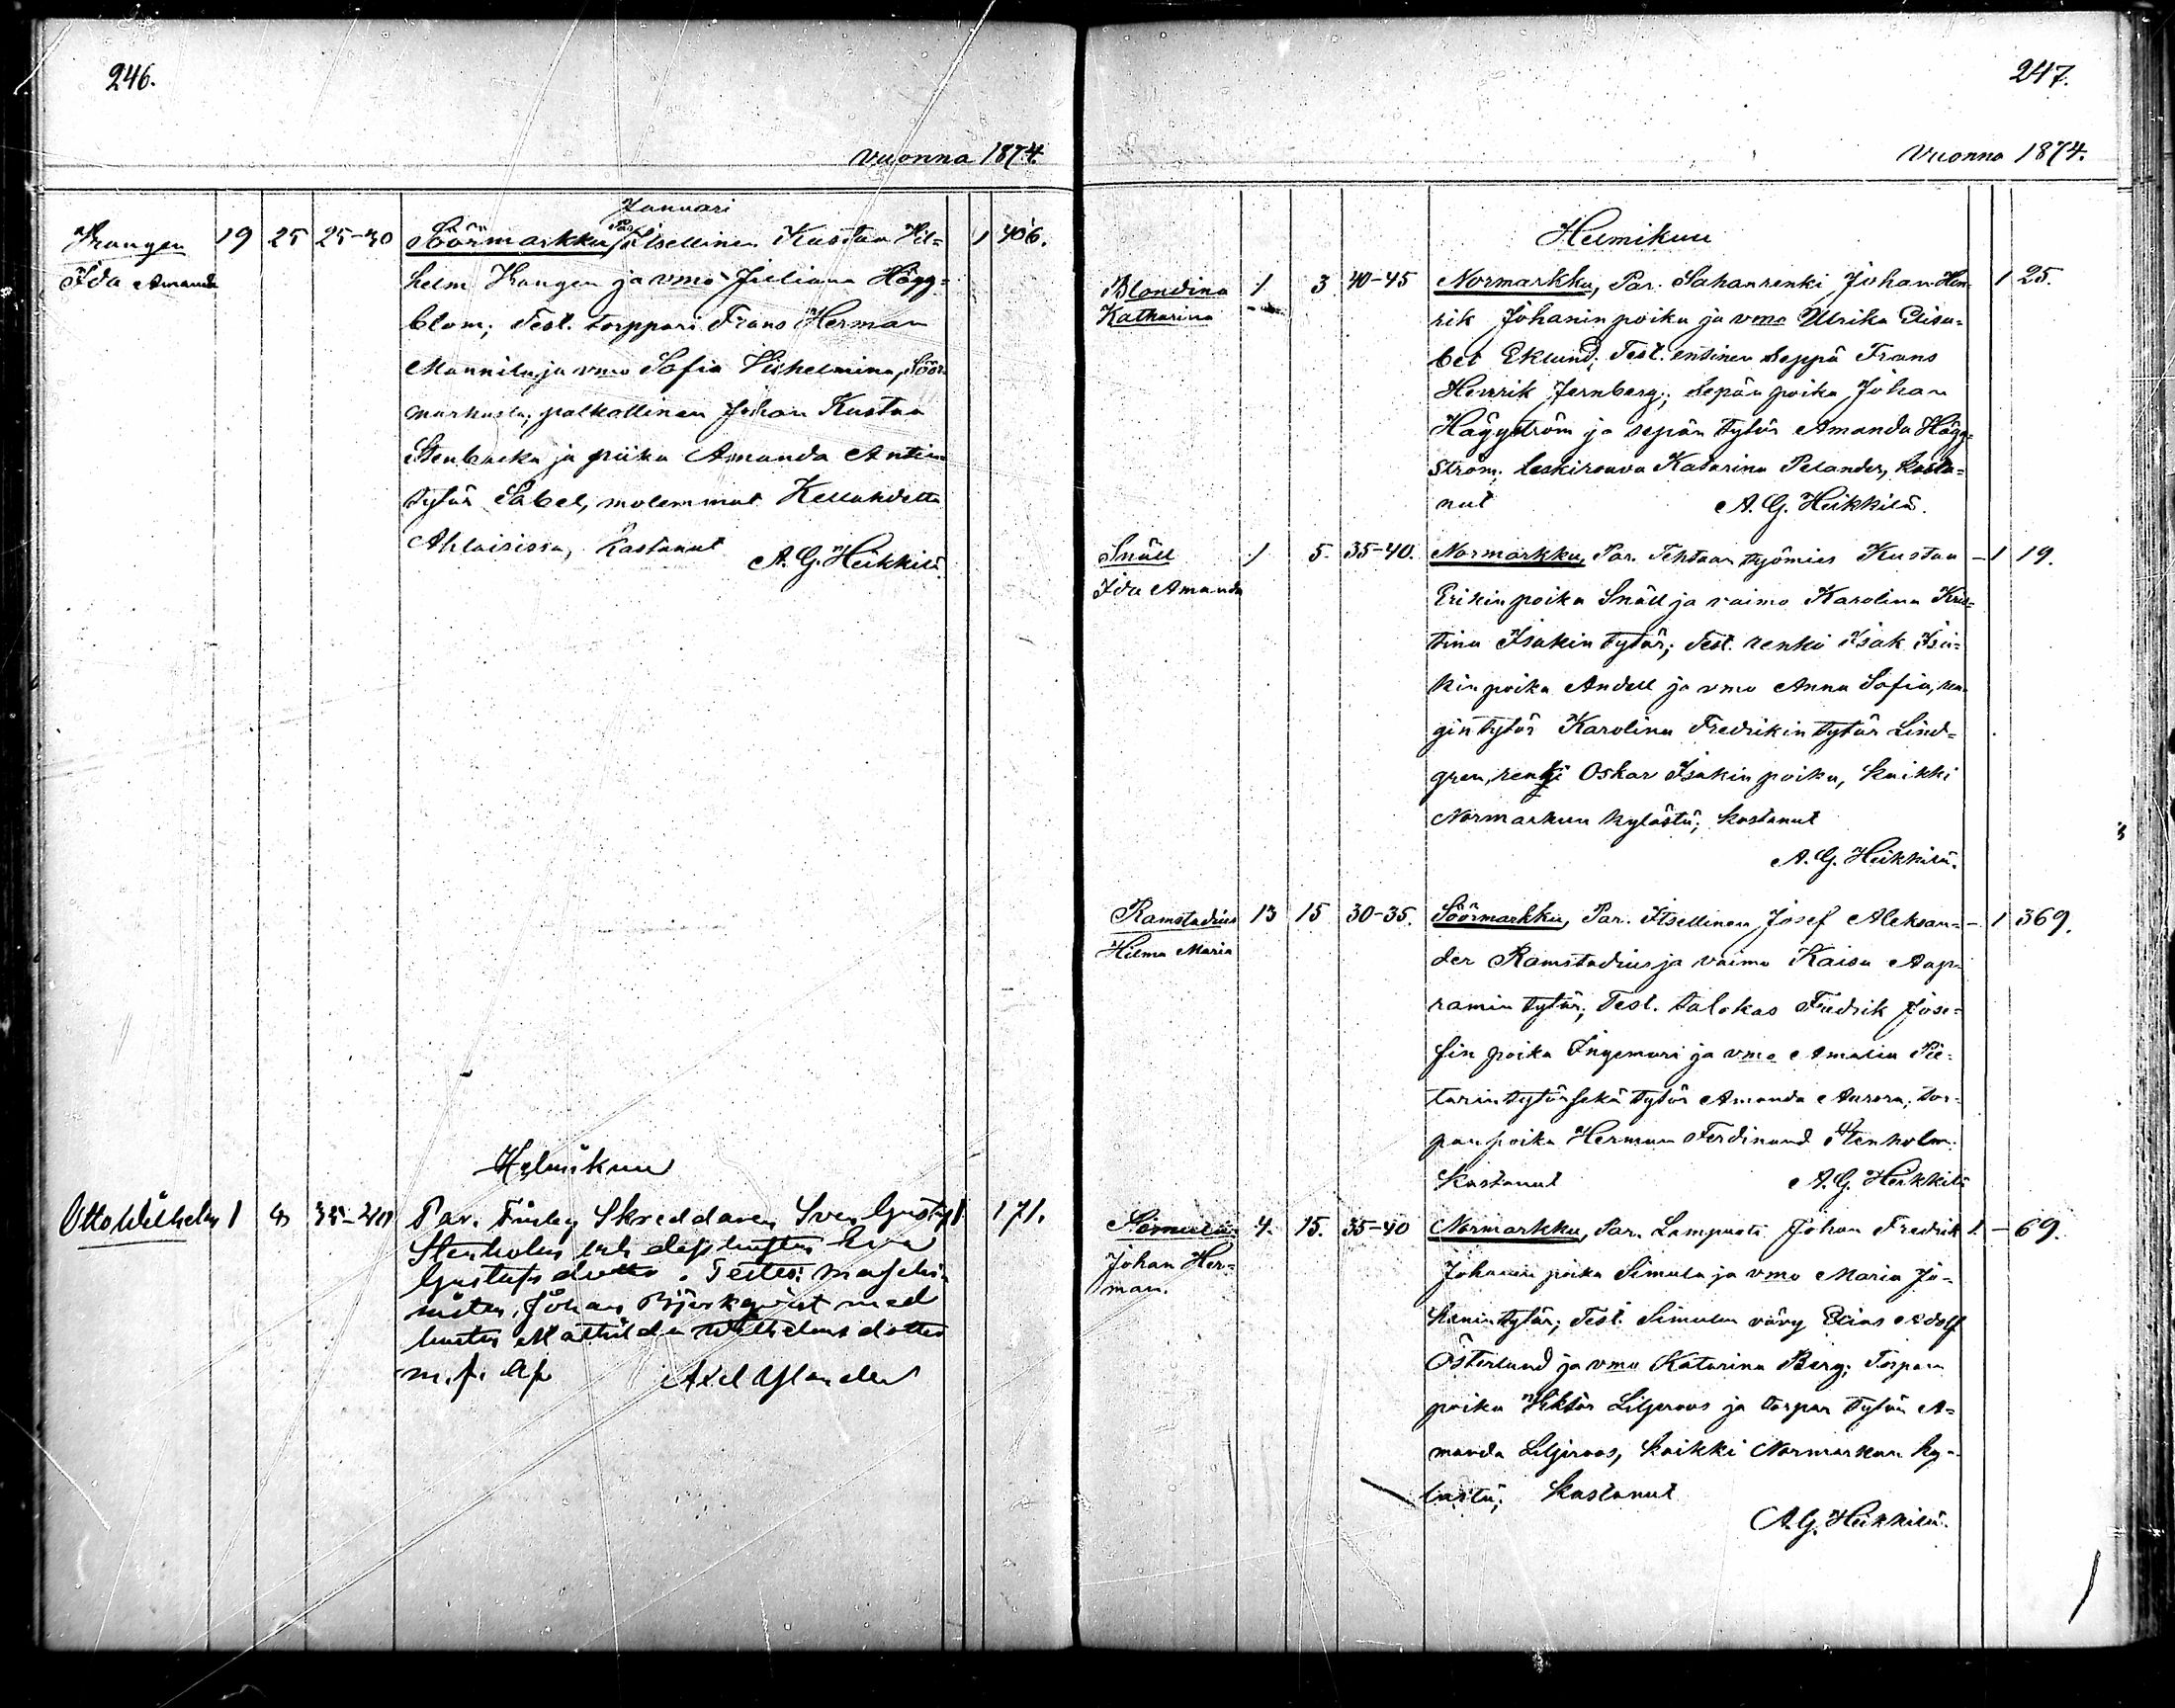 246.
vuonna 1874.
Januari
Krangen 19 25 25-30 Söörmarkku, Par. Itsellinen Kustaa Vil= 1 406.
Ida Amanda
helm Krangen ja vmo Juliana Högg=
blom; Test. torppari Frans Herman
Mannila ja vmo Sofia Vilhelmina, Söör-
markusta; palkollinen Johan Kustaa
Stenbacka ja piika Amanda Antin
tytär Sabel, molemmat Kellahdetta
Ahlaisissa, Kastanut
A. G. Heikkilä.
Helmikuu
Otto Wilhelm 1 8 35-40 Par. Finby Skreddaren Sven Gustaf 1 171.
Stenholm och dess hustru Eva
Gustafsdotter. Testes: maschi-
nisten Johan Björkqvist med
hustru Mathilda Wilhelmsdotter
m. fl. Af
Axel Uglander
247.
Vuonna 1874.
Helmikuu
Blondina 1 3 40-45 Normarkku, Par. Sahanrenki Johan Hen 1 25.
Katharina
rik Johanin poika ja vmo Ulrika Elisa=
bet Eklund; Test. entinen Seppä Frans
Henrik Jernberg; Sepän poika Johan
Häggström ja sepän tytär Amanda Hägg=
ström; Leskirouva Katarina Pelander, Kasta=
nut A. G. Heikkilä.
Snäll 1 5. 35-40. Normarkku, Par. Tehtaan työmies Kustaa - 1 19.
Ida Amanda
Erikin poika Snäll ja vaimo Karolina Kris=
tina Isakin tytär; Test. renki Isak Isa=
kin poika Andell ja vmo Anna Sofia, ren
gin tytär Karolina Fredrikin tytär Lind=
gren, renki Oskar Isakin poika, kaikki
Normarkun kylästä; Kastanut
A. G. Heikkilä.
Ramstadius 13 15 30-35. Söörmarkku, Par. Itsellinen Josef Aleksan= - 1 369.
Hilma Maria
der Ramstadius ja vaimo Kaisa Aap-
ramin tytär; Test. talokas Fredrik Jose=
fin poika Ingemari ja vmo Amalia Pie-
tarin tytär sekä tytär Amanda Aurora; tor-
pan poika Herman Ferdinand Stenholm.
Kastanut A. G. Heikkilä
Simula 4. 15. 35-40 Normarkku, Par. Lampuoti Johan Fredrik 1. - 69.
Johan Her=
man.
Johanin poika Simula ja vmo Maria Jo-
hanin tytär; Test. Simulan vävy Elias Adolf
Österlund ja vmo Katarina Berg; Torpan
poika Viktor Liljeroos ja torpan tytär A=
manda Liljeroos, kaikki Normarkun ky-
lästä; Kastanut
A. G. Heikkilä.